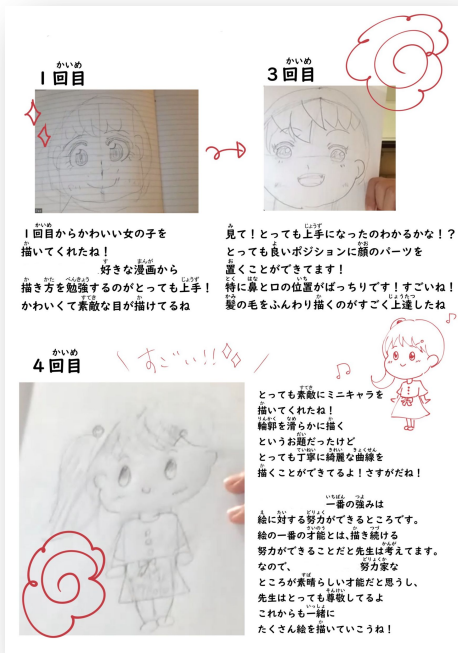 1回目
1回目からかわいい女の子を
描いてくれたね！
好きな漫画から
描き方を勉強するのがとっても上手！
かわいくて素敵な目が描けてるね
3回目
見て！とっても上手になったのわかるかな！？
とっても良いポジションに顔のパーツを
置くことができてます！
特に鼻と口の位置がばっちりです！すごいね！
髪の毛をふんわり描くのがすごく上達したね
4回目
すごい!!
とっても素敵にミニキャラを
描いてくれたね！
輪郭を滑らかに描く
というお題だったけど
とっても丁寧に綺麗な曲線を
描くことができてるよ！さすがだね！
一番の強みは
絵に対する努力ができるところです。
絵の一番の才能とは、描き続ける
努力ができることだと先生は考えてます。
なので、 努力家な
ところが素晴らしい才能だと思うし、
先生はとっても尊敬してるよ
これからも一緒に
たくさん絵を描いていこうね！